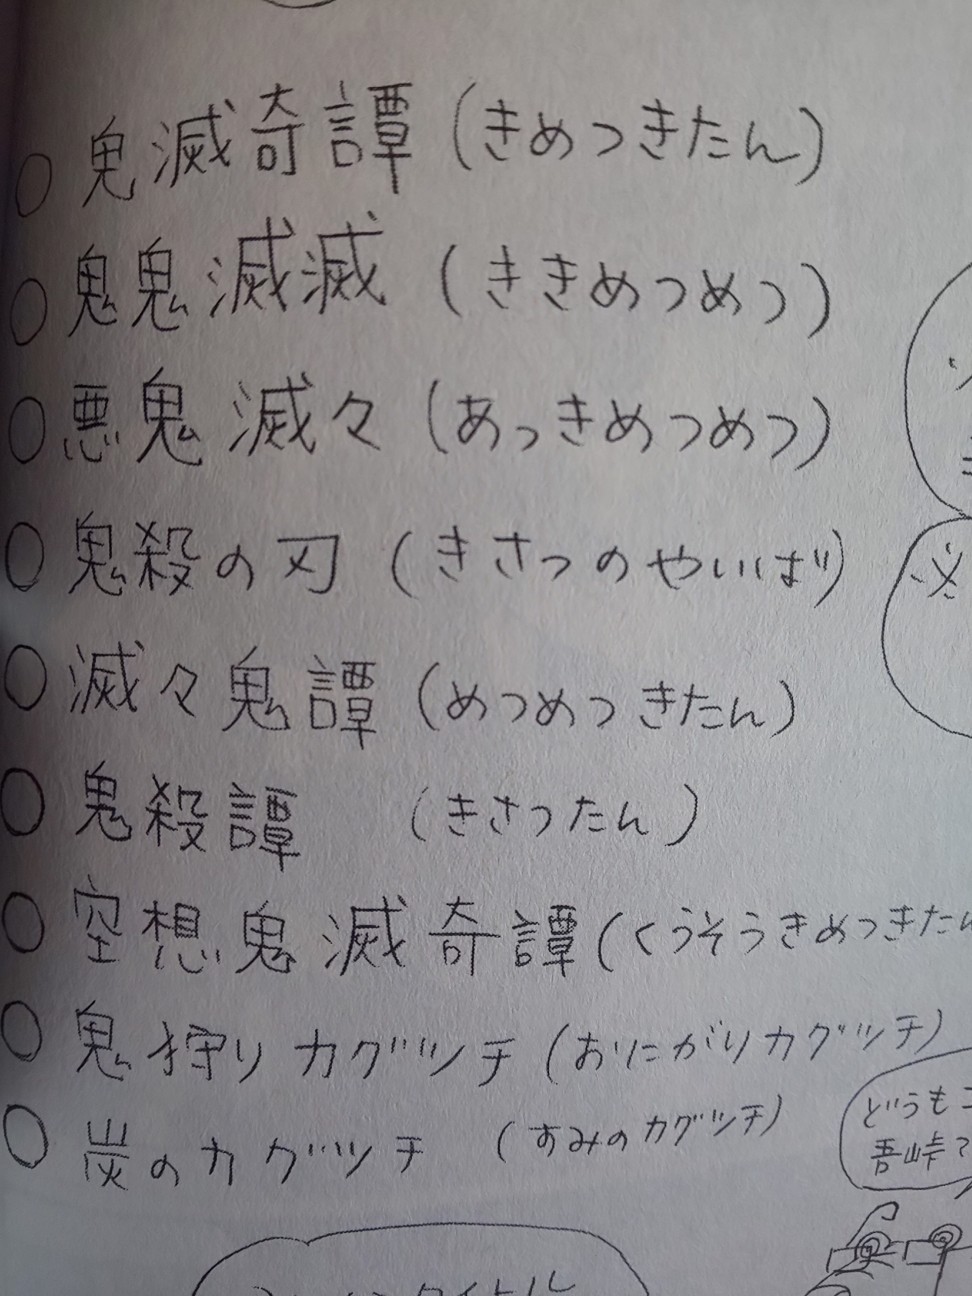 ○鬼滅奇譚(きめつきたん)
○鬼鬼滅滅(ききめつめつ)
○悪鬼滅々(あっきめつめつ)
○鬼殺の刃(きさつのやいば)
○滅々鬼譚(めつめつきたん)
○鬼殺譚(きさつたん)
○空想鬼滅奇譚(くうそうきめつきたん
○鬼狩りカグツチ(おにがりカグツチ)
○炭のカグツチ(すみのカグツチ)
どうも
吾峠で
タイトル